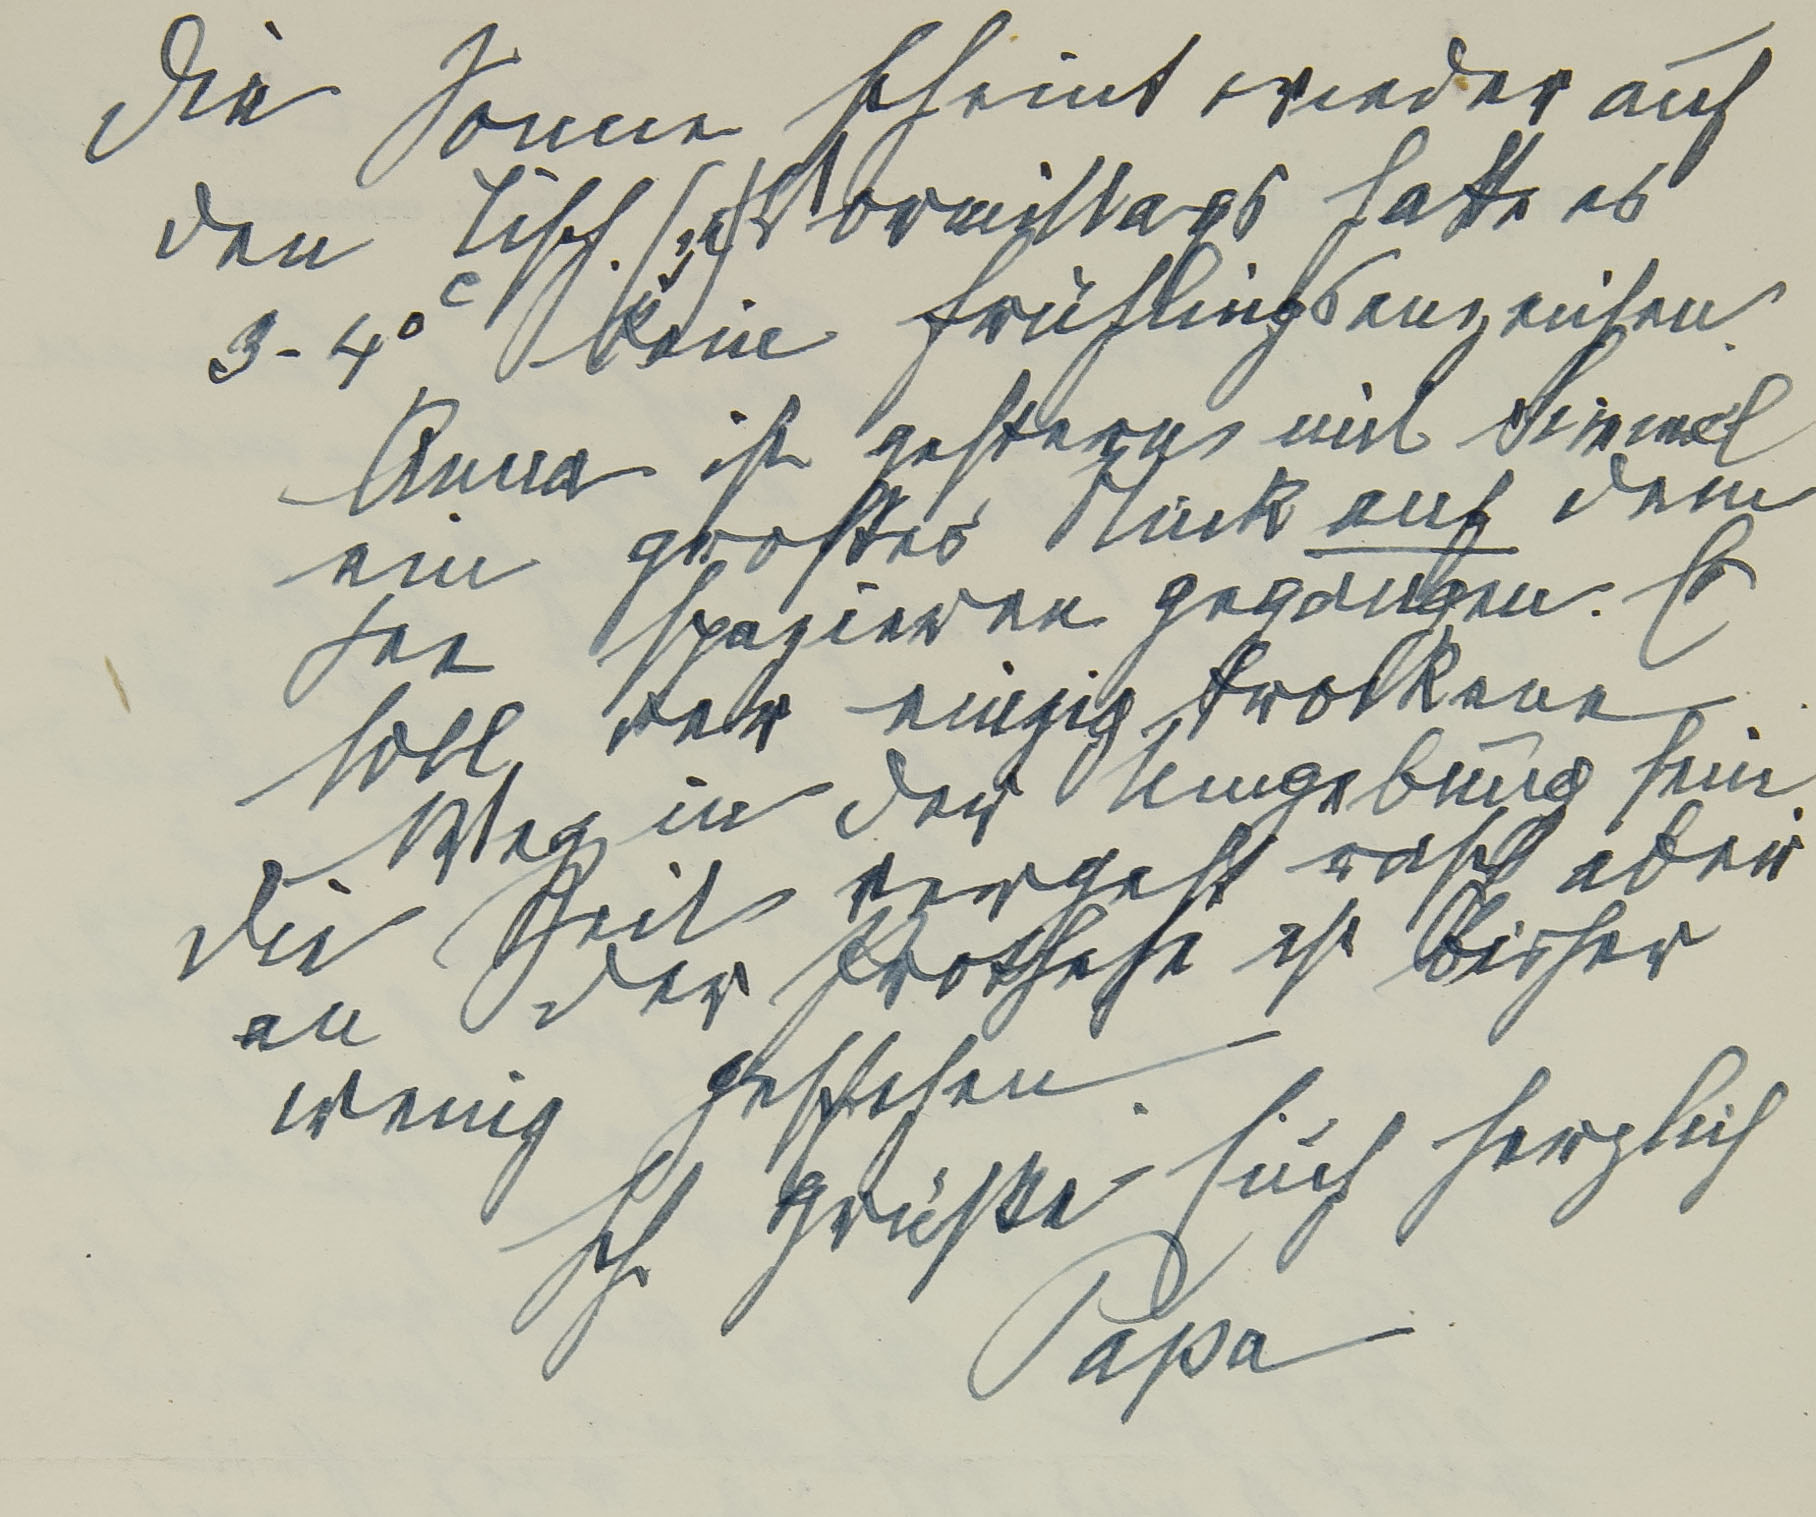 Die Sonne scheint wieder auf
den Tisch. Vormittags hatte es
3-4° C kein Frühlingsanzeichen.
Anna ist gestern mit Simmel
ein großes Stück auf dem
See spazieren gegangen. Es
soll der einzig trockene
Weg in der Umgebung sein.
Die Zeit vergeht rasch aber
an der Prothese ist bisher
wenig geschehen.
Ich grüße Euch herzlich
Papa